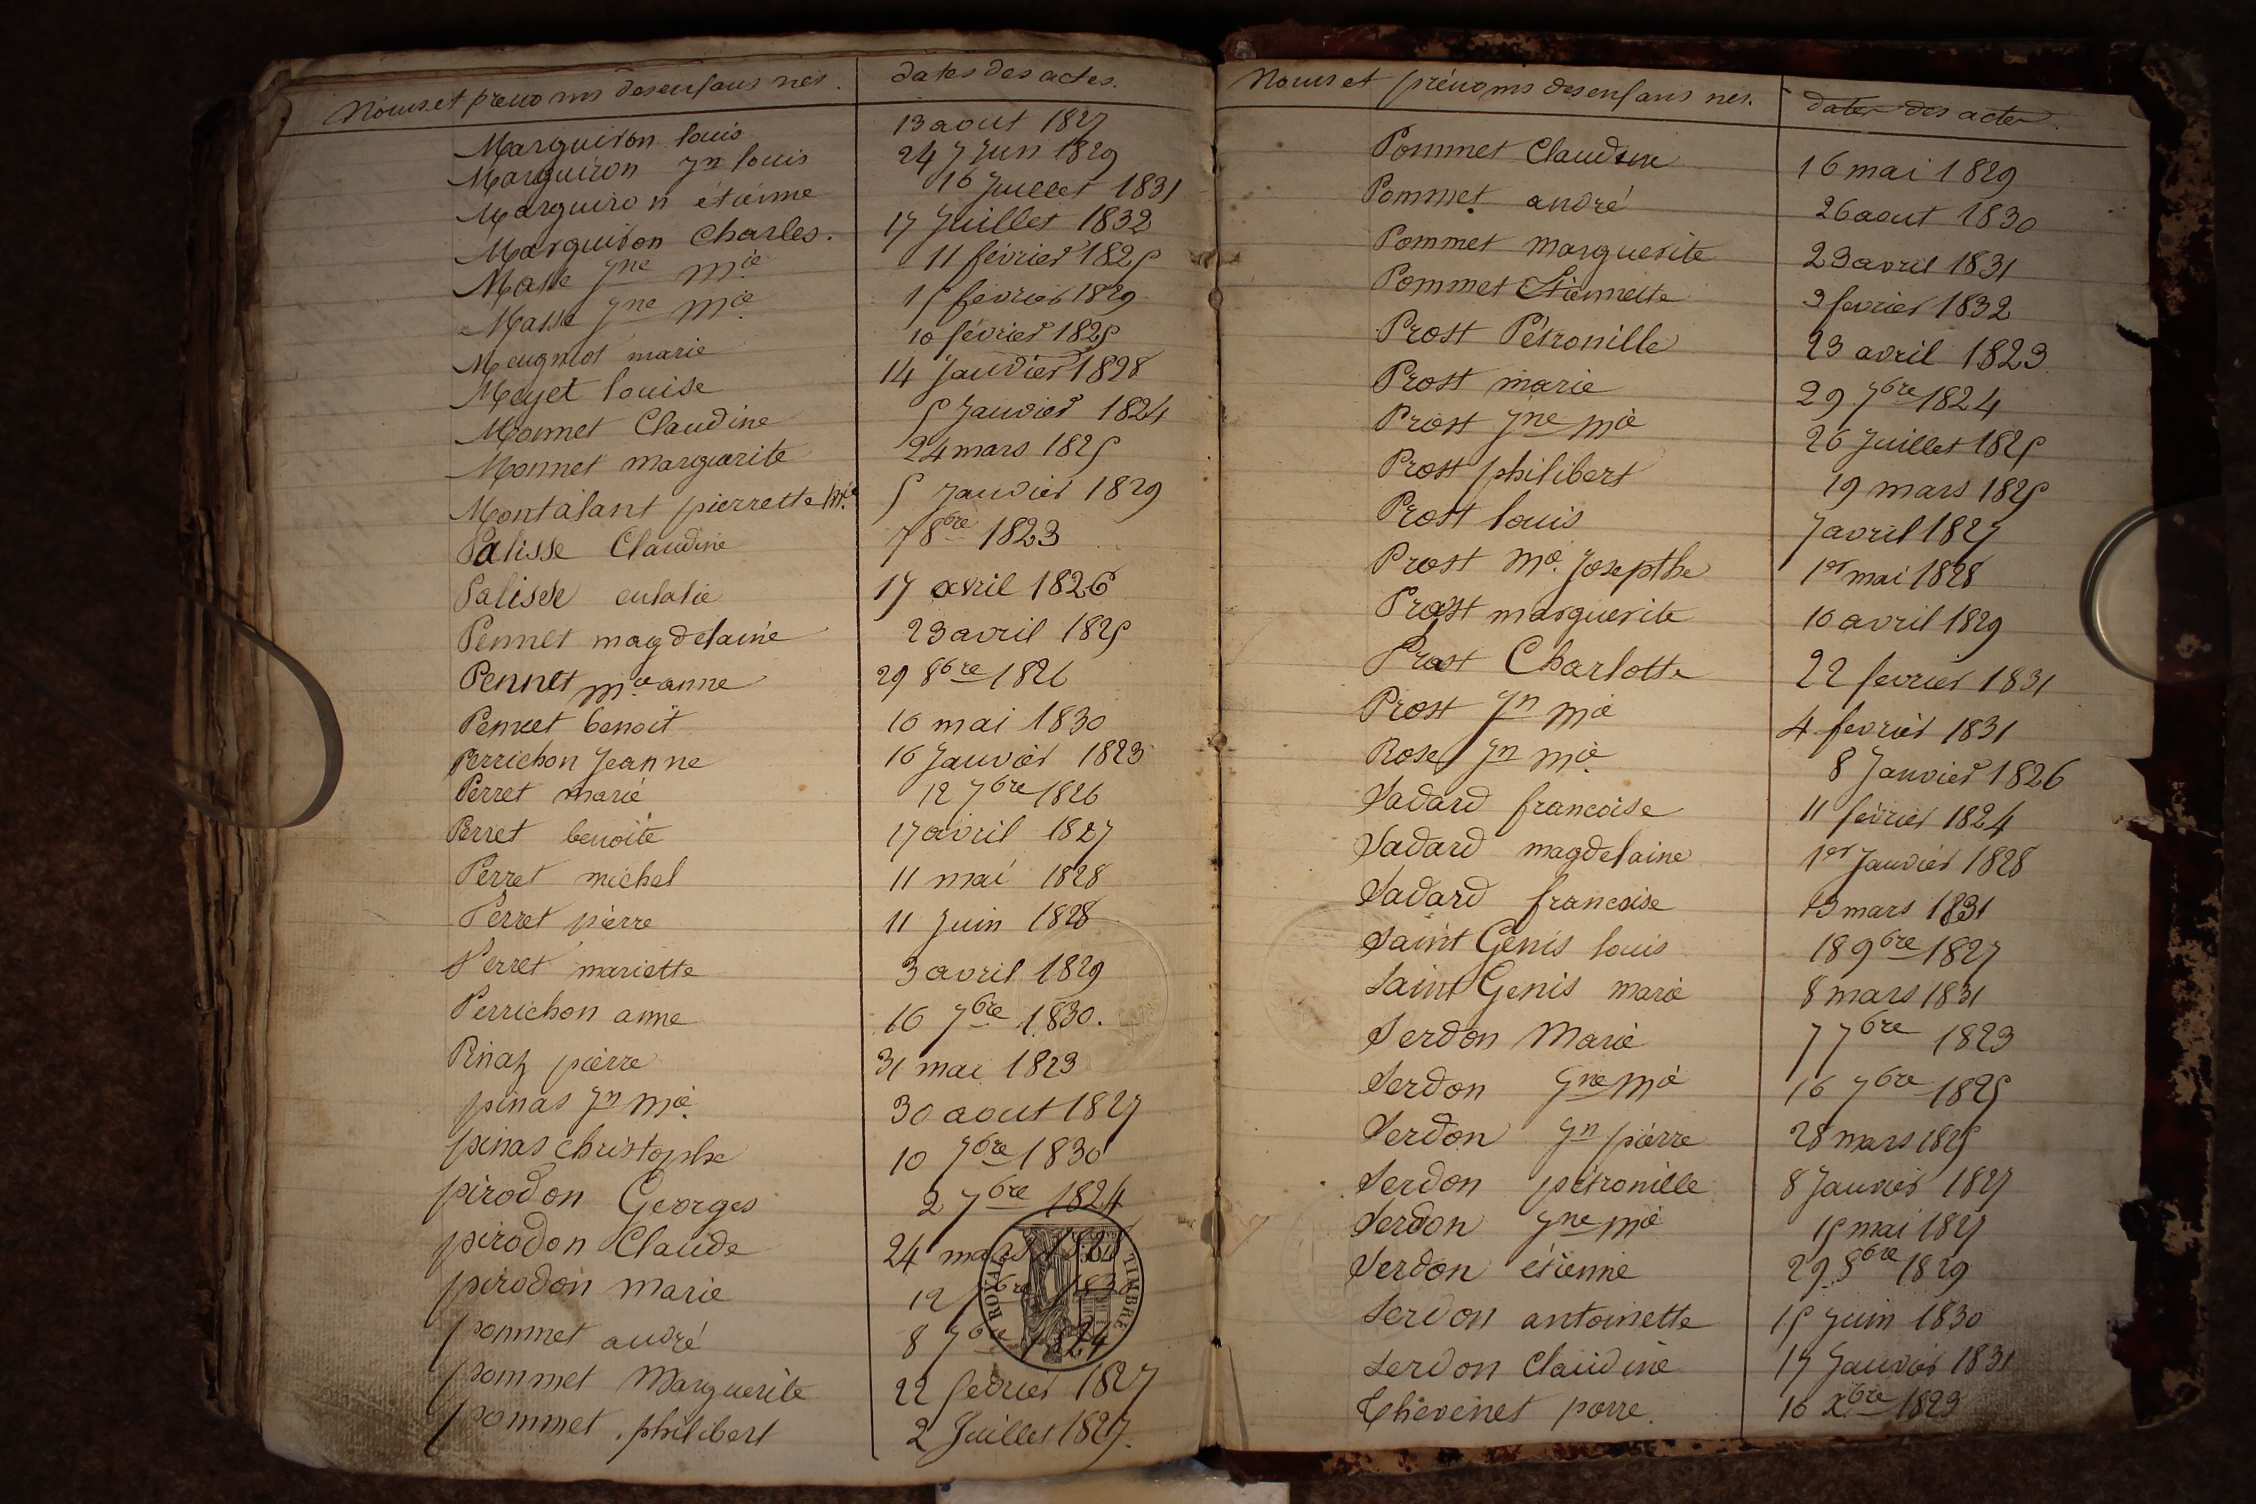 Noms et prenoms des enfans nés. dates des actes.
Marguiron louis 13 aout 1827
Marguiron Jn louis 24 Juin 1829
Marguiron étiénne 16 Juillet 1831
Marguiron Charles. 17 Juillet 1832
Masse Jne Mie 11 février 1825
Masse Jne Mie 15 fevrier 1829
Meugniot marie 10 février 1825
Meyet louise 14 Janvier 1828
Monnet Claudine 5 Janvier 1824
Monnet marguerite 24 mars 1825
Montalant pierrette Mie 5 Janvier 1829
Palisse Claudine 7 8bre 1823
Palisse eulalie 17 avril 1826
Pennet magdelaine 23 avril 1825
Pennet Mie anne 29 8bre 1826
Pennet benoit 16 mai 1830
Perrichon Jeanne 16 Janvier 1823
Perret marie 12 7bre 1826
Perret benoite 17 avril 1827
Perret michel 11 mai 1828
Perret pierre 11 Juin 1828
Perret mariette 3 avril 1829
Perrichon anne 16 7bre 1830.
Pinaz pierre 31 mai 1823
pinas Jn Mie 30 aout 1827
pinas christophe 10 7bre 1830
pirodon Georges 2 7bre 1824
pirodon Claude 24 mars
pirodon Marie 12
pommet andré 8 7bre 1824
pommet Marguerite 22 fevrier 1827
pommet philibert 2 Juillet 1827.
TIMBRE ROYAL
Noms et prénoms des enfans nés. dates des actes.
Pommet Claudine 16 mai 1829
Pommet andré 26 aout 1830
Pommet marguerite 23 avril 1831
Pommet Etiennette 3 fevrier 1832
Prost Pétronille 23 avril 1823
Prost marie 29 7bre 1824
Prost Jne Mie 26 Juillet 1825
Prost philibert 19 mars 1825
Prost louis 7 avril 1827
Prost Me. Josepthe 1er mai 1828
Prost marguerite 10 avril 1829
Prost Charlotte 22 fevrier 1831
Prost Jn Mie 4 fevrier 1831
Rose Jn Mie 8 Janvier 1826
Sadard francoise 11 février 1824
Sadard magdelaine 1er Janvier 1828
Sadard francoise 13 mars 1831
Saint Genis louis 18 9bre 1827
Saint Genis marie 8 mars 1831
Serdon Marie 7 7bre 1823
Serdon Jne Mie 16 7bre 1825
Serdon Jn pierre 28 mars 1825
Serdon pétronille 8 Janvier 1827
Serdon Jne Mie 15 mai 1827
Serdon étienne 29 8bre 1829
Serdon antoinette 15 Juin 1830
Serdon Claudine 17 Janvier 1831
Thévenet pierre. 16 Xbre 1823